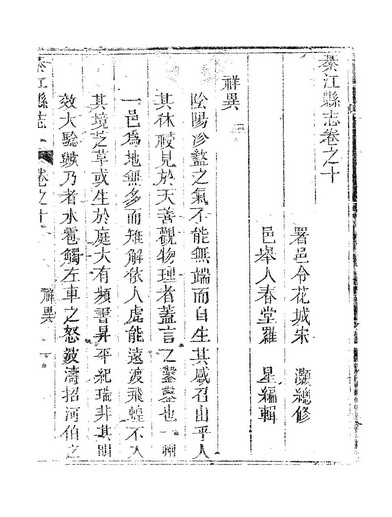 綦江縣志卷之十
署邑令花城宋灝總修
邑舉人春堂羅星編輯
祥異
陰陽沴盭之氣不能無端而自生其感召由乎人
其休祲見於天善觀物理者蓋言之鑿鑿也
一邑為地無多而雉解依人虎能遠渡飛蝗不入
其境芝草或生於庭大有頻書昇平紀瑞非其明
效大驗歟乃者水雹觸左車之怒波濤招河伯之
綦江縣志
卷之十
祥異
一